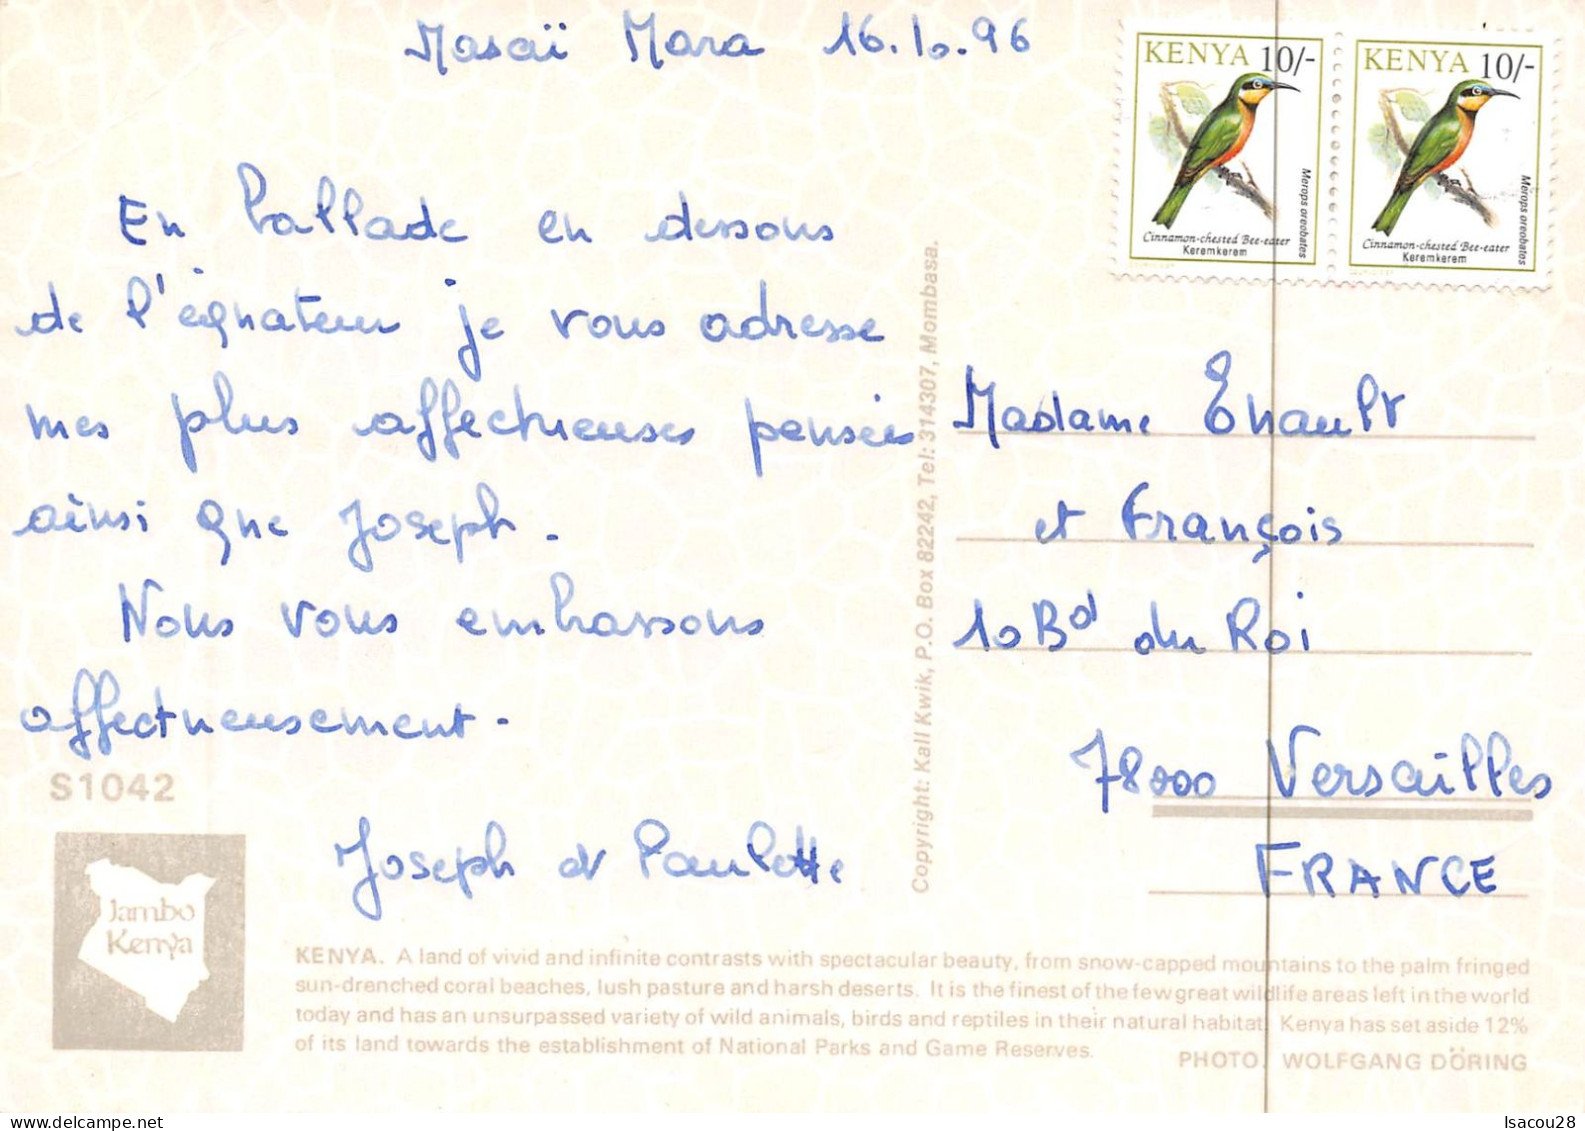 Masaï Mara 16.10.96
En ballade en dessous
de l'éqnateur je vous adresse
mes plus affectueuses pensées
ainsi que Joseph.
Nous vous embrassons
affectueusement.
Joseph et Paulette
KENYA 10/-
Merops oreobates
Cinnamon-chested Bee-eater
Keremkerem
KENYA 10/-
Merops oreobates
Cinnamon-chested Bee-eater
Keremkerem
Copyright: Kall Kwik, P.O. Box 82242, Tel: 314307, Mombasa.
Madame Enault
et François
10 Bd du Roi
78000 Versailles
FRANCE
S1042
Jambo
Kenya
KENYA. A land of vivid and infinite contrasts with spectacular beauty, from snow-capped mountains to the palm fringed
sun-drenched coral beaches, lush pasture and harsh deserts. It is the finest of the few great wildlife areas left in the world
today and has an unsurpassed variety of wild animals, birds and reptiles in their natural habitat. Kenya has set aside 12%
of its land towards the establishment of National Parks and Game Reserves.
PHOTO. WOLFGANG DÖRING
Isacou28